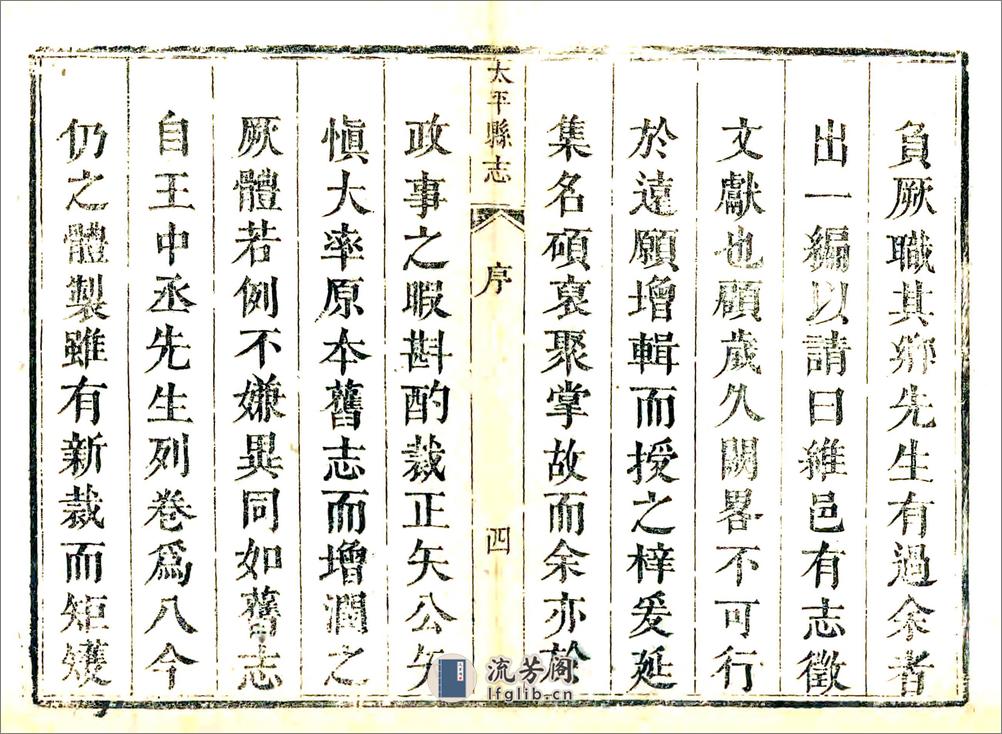 負厥職其鄉先生有過余者
出一編以請曰維邑有志徵
文獻也顧歲久闕畧不可行
於遠願增輯而授之梓爰延
集名碩裒聚掌故而余亦於
太平縣志 序 四
政事之暇斟酌裁正矢公矢
慎大率原本舊志而增潤之
厥體若例不嫌異同如舊志
自王中丞先生列卷爲八今
仍之體製雖有新裁而矩矱
流芳阁
lfglib.cn